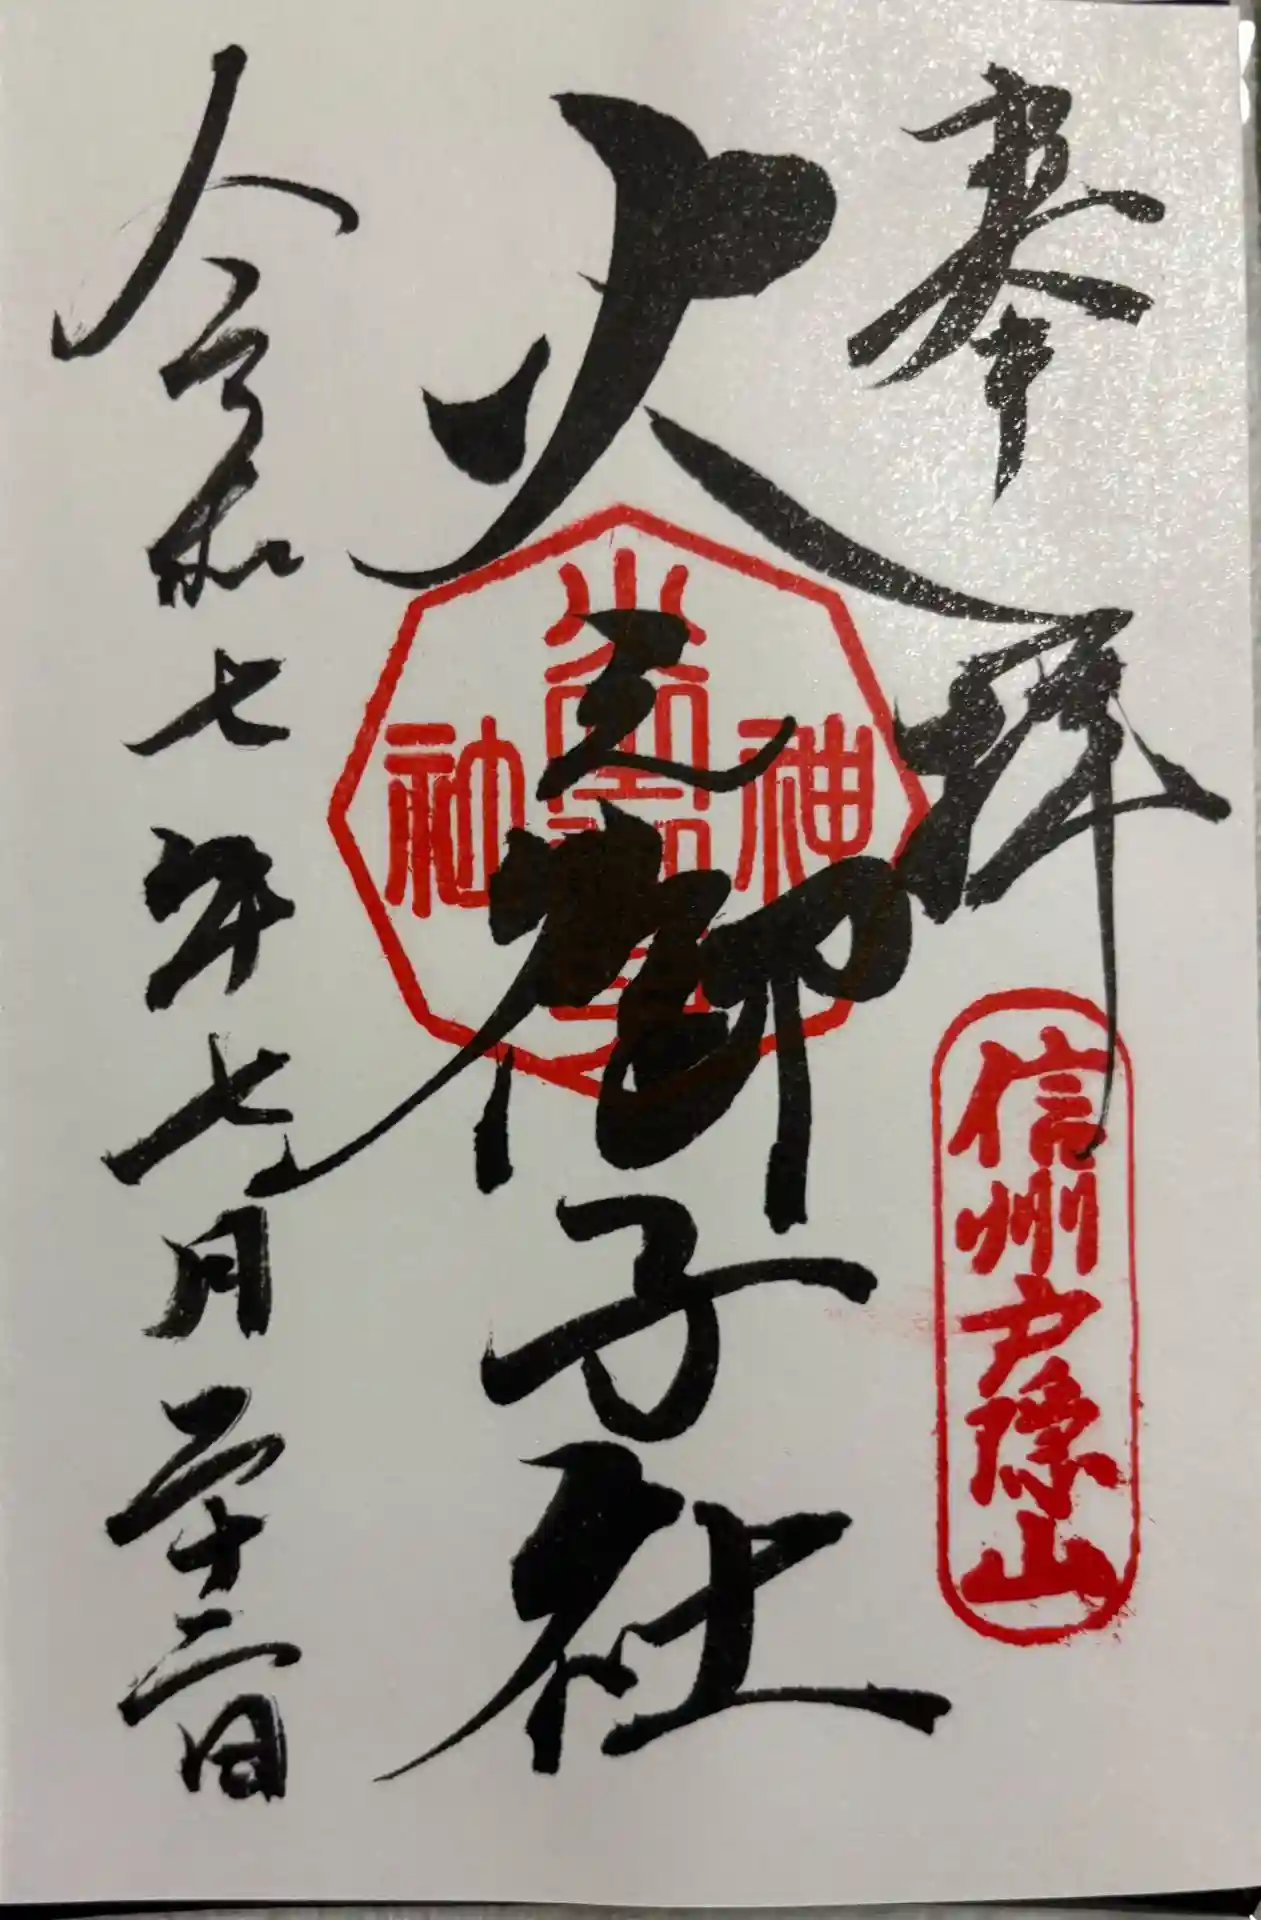 奉拝
信州戸隠山
火之御子社
神
社
令和七年七月二十二日